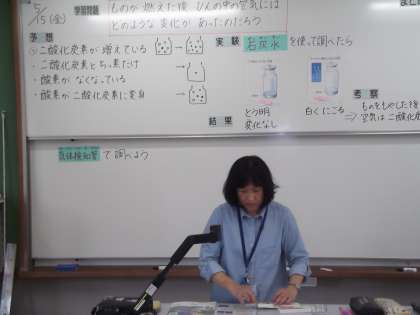 5/15(金)
学習問題
ものが燃えた後、びんの中の空気には
どのような変化があったのだろう
まとめ
予想
・二酸化炭素が増えている
・二酸化炭素とちっ素だけ
・酸素がなくなっている
・酸素が二酸化炭素に変身
実験 石灰水を使って調べたら
とう明
変化なし
白くにごる
結果
考察
ものをもやした後
⇒空気は二酸化炭
気体検知管で調べよう